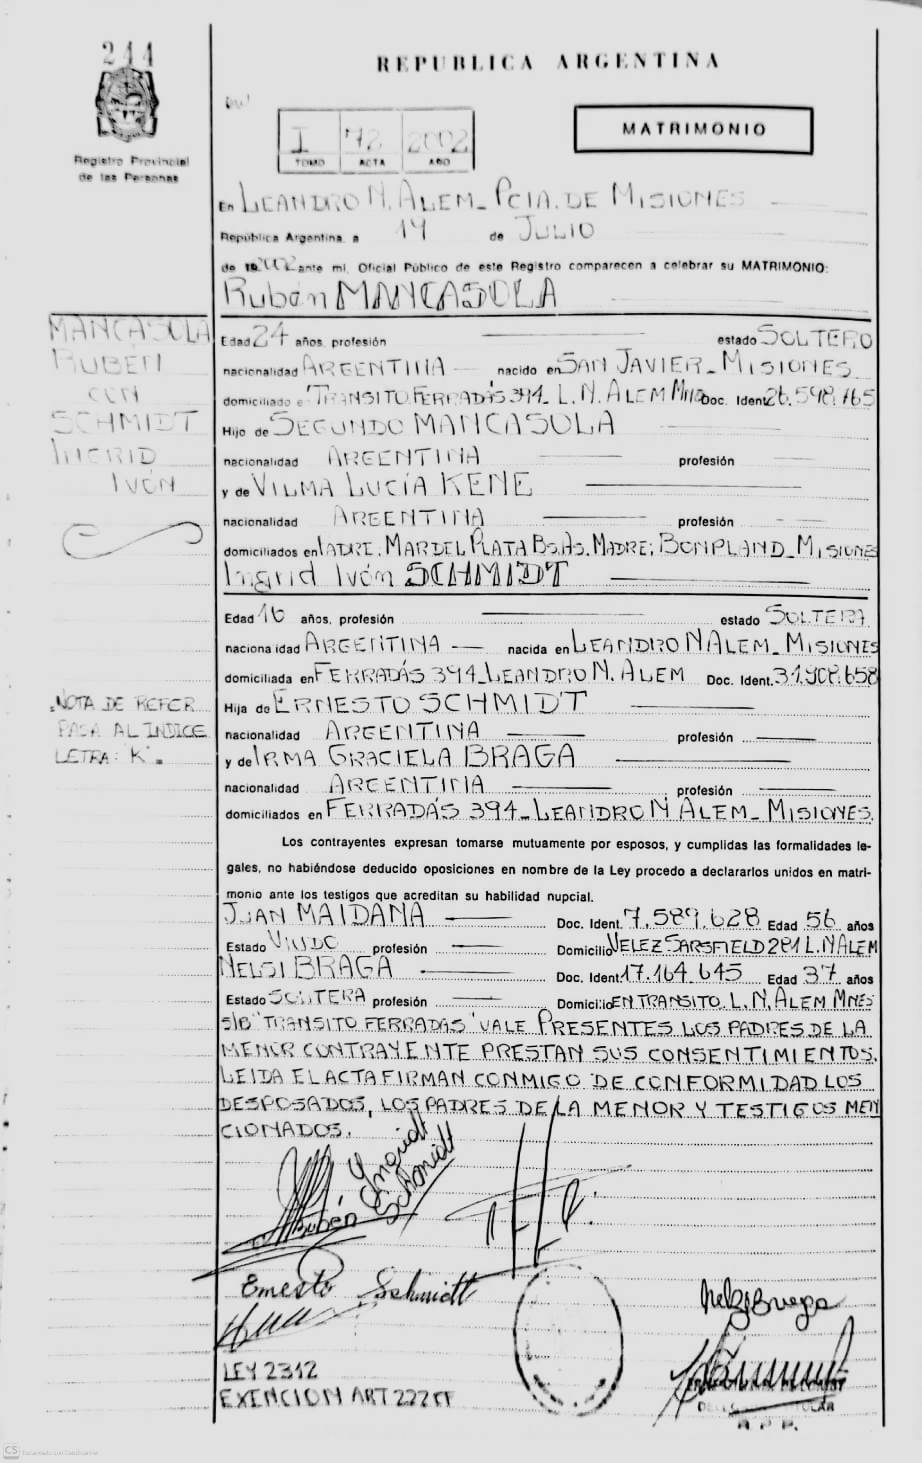 244
REPUBLICA ARGENTINA
Registro Provincial
de las Personas
I 72 2002
TOMO ACTA AÑO
MATRIMONIO
En LEANDRO N. ALEM_ PCIA. DE MISIONES
República Argentina, a 14 de JULIO
de 2002 ante mi, Oficial Público de este Registro comparecen a celebrar su MATRIMONIO:
Rubén MANCASOLA
MANCASOLA
RUBÉN
CON
SCHMIDT
INGRID
IVÓN
Edad 24 años, profesión estado SOLTERO
nacionalidad ARGENTINA nacido en SAN JAVIER_ MISIONES
domiciliado e "TRANSITO FERRADÁS 394_ L.N. ALEM Mnes Doc. Ident. 26.598.765
Hijo de SEGUNDO MANCASOLA
nacionalidad ARGENTINA profesión
y de VILMA LUCÍA KENE
nacionalidad ARGENTINA profesión
domiciliados en PADRE: MAR DEL PLATA Bs.As. MADRE: BONPLAND_ MISIONES
Ingrid Ivón SCHMIDT
Edad 16 años, profesión estado SOLTERA
naciona idad ARGENTINA nacida en LEANDRO N ALEM_ MISIONES
domiciliada en FERRADÁS 394_ LEANDRO N. ALEM Doc. Ident. 31.908.658
Hija de ERNESTO SCHMIDT
nacionalidad ARGENTINA profesión
y de IRMA GRACIELA BRAGA
nacionalidad ARGENTINA profesión
domiciliados en FERRADÁS 394_ LEANDRO N ALEM_ MISIONES.
NOTA DE REFER
PASA AL INDICE
LETRA: "K".
Los contrayentes expresan tomarse mutuamente por esposos, y cumplidas las formalidades le-
gales, no habiéndose deducido oposiciones en nombre de la Ley procedo a declararlos unidos en matri-
monio ante los testigos que acreditan su habilidad nupcial.
JUAN MAIDANA Doc. Ident. 7.589.628 Edad 56 años
Estado VIUDO profesión Domicilio VELEZ SARSFIELD 281 L.N ALEM
NELSI BRAGA Doc. Ident. 17.164.645 Edad 37 años
Estado SOLTERA profesión Domicilio EN TRANSITO. L.N. ALEM MNES
S/B "TRANSITO FERRADAS" VALE PRESENTES LOS PADRES DE LA
MENOR CONTRAYENTE PRESTAN SUS CONSENTIMIENTOS.
LEIDA EL ACTA FIRMAN CONMIGO DE CONFORMIDAD LOS
DESPOSADOS, LOS PADRES DE LA MENOR Y TESTIGOS MEN
CIONADOS.
Rubén
Ingridt
Schmidt
Ernesto Schmidt
LEY 2312
EXENCION ART 222
TITULAR
R. P. P.
CS